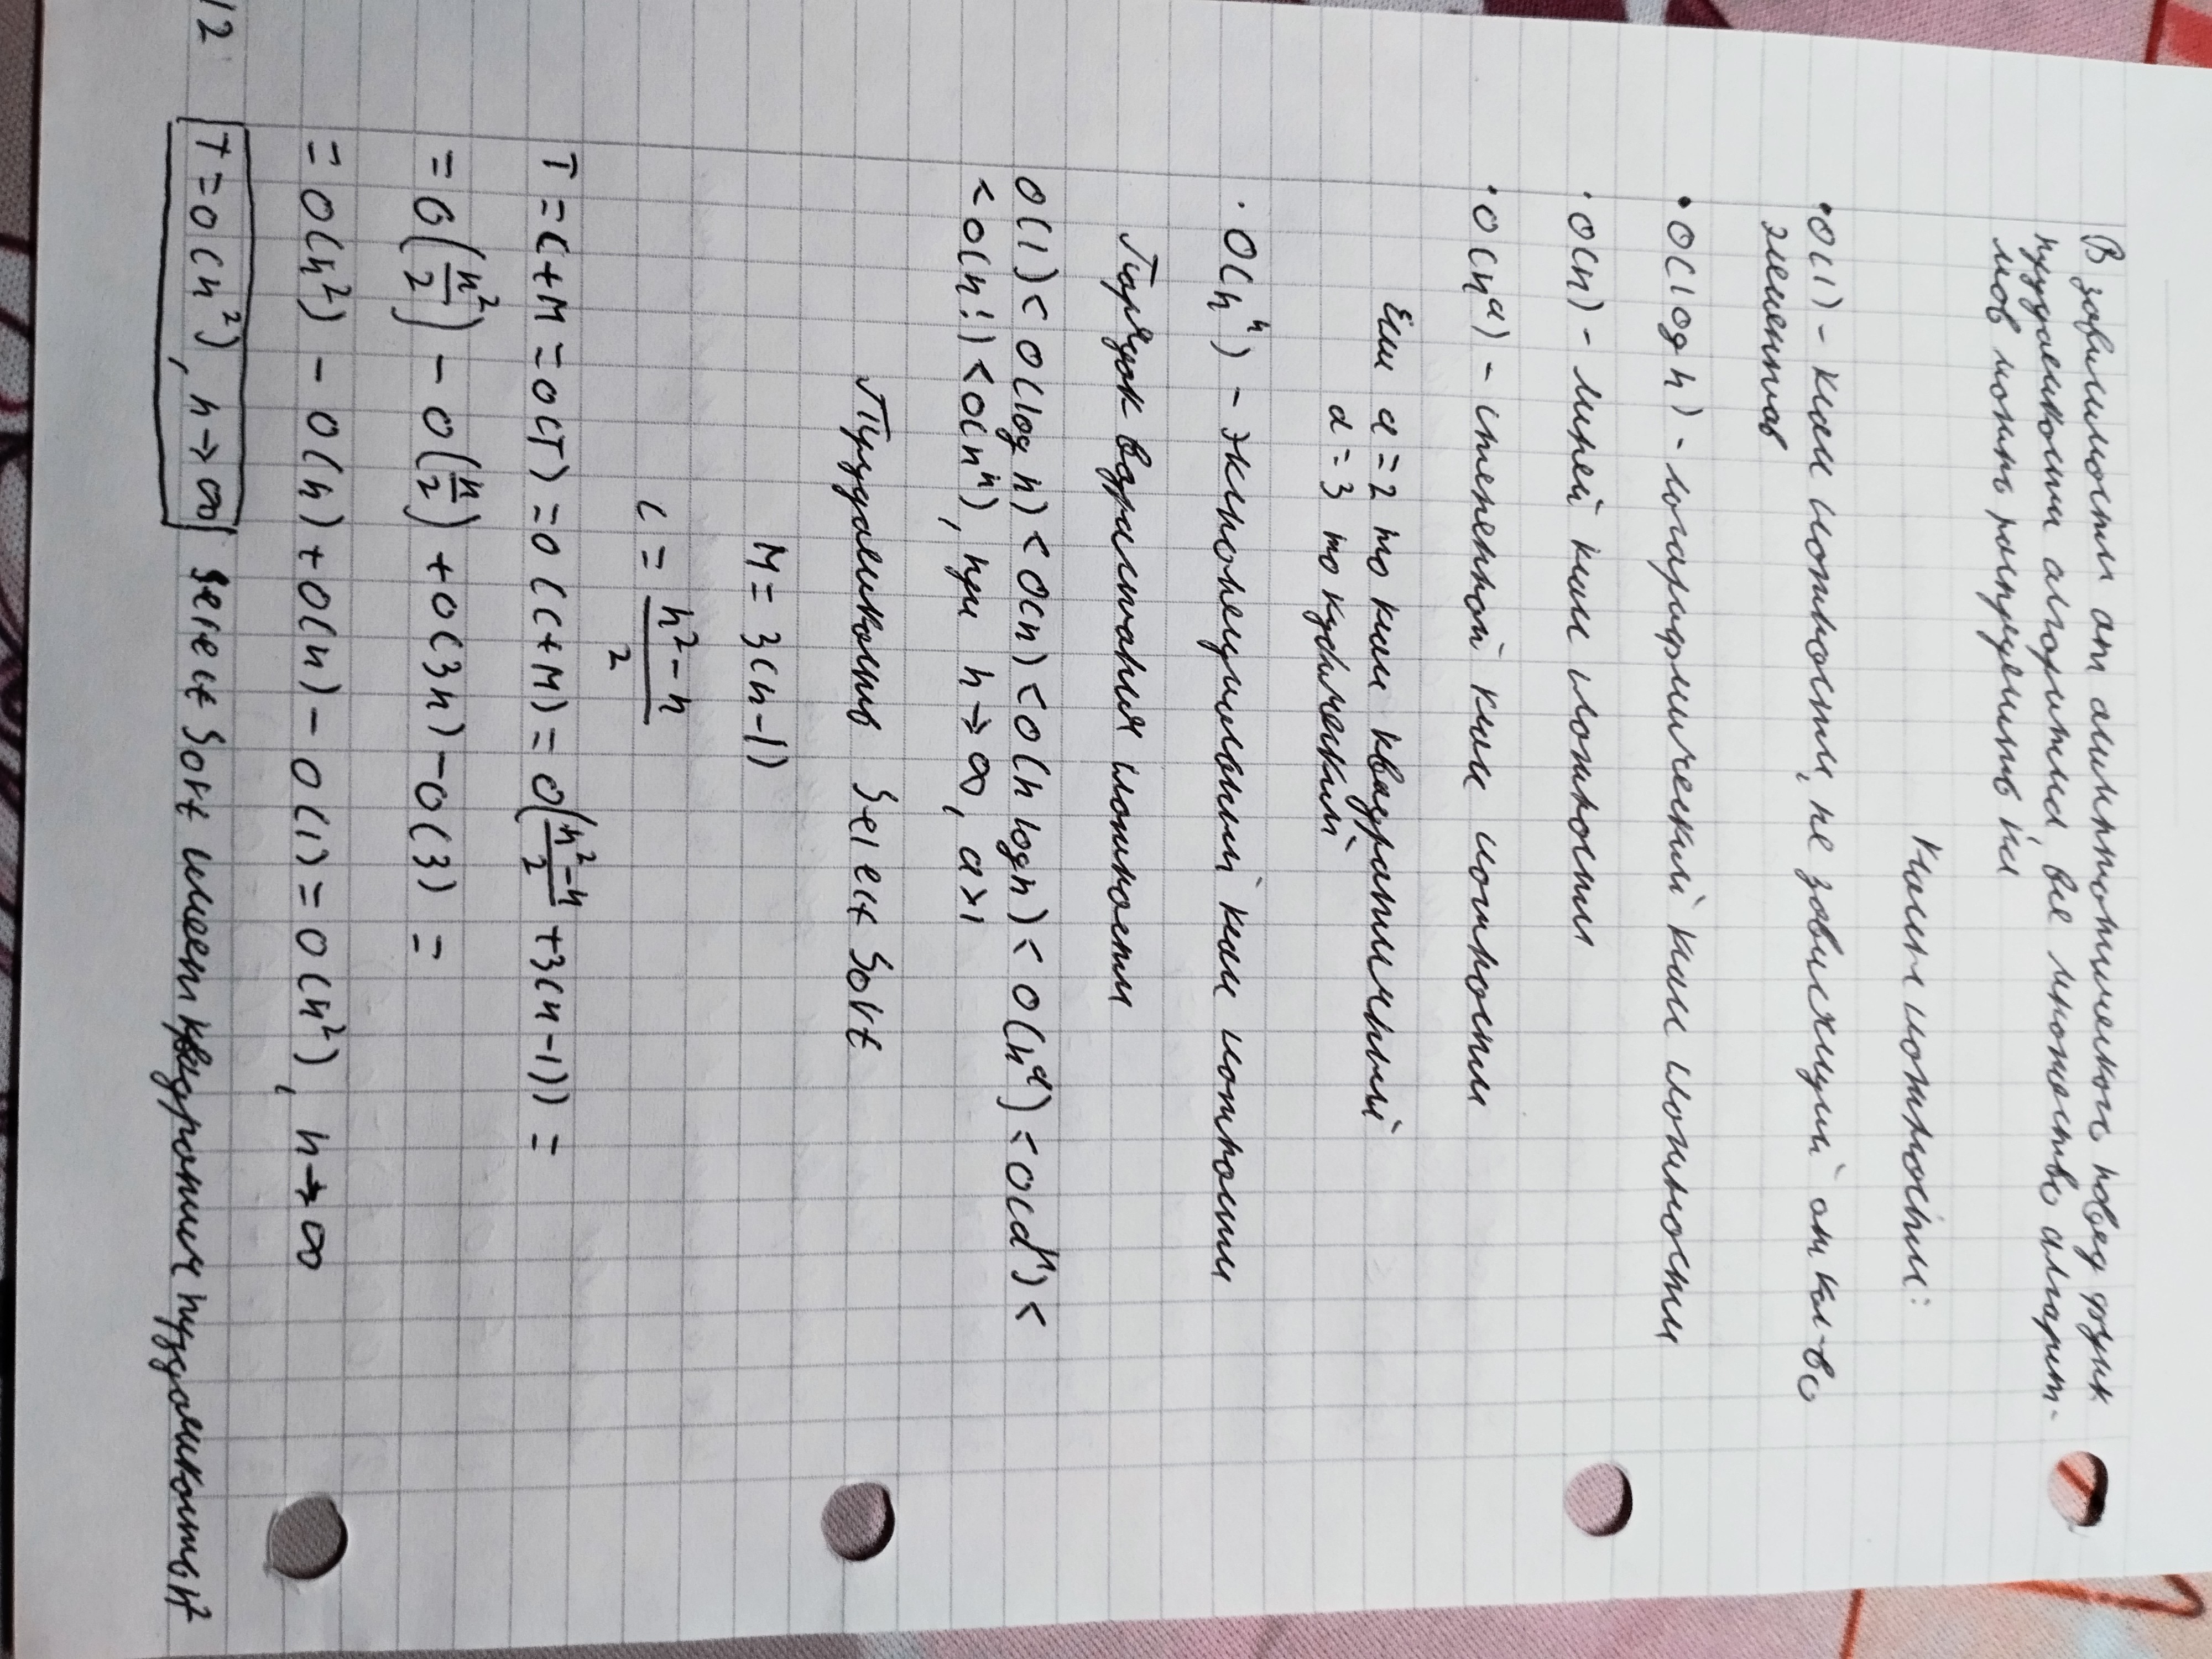 В зависимости от асимптотического повед функ
трудоемкости алгоритма, все множество алгорит-
мов можно распределить на
класы сложности:
• O(1) - клас сложности, не зависящий от кол-во
элементов
• O(log n) - логарифмический клас сложности
• O(n) - линей клас сложности
• O(n^a) - степенной клас сложности
Если a = 2 то клас квадратичный
a = 3 то кубический
• O(n^n) - экспонециальный клас сложности
Порядок возрастания сложности
O(1) < O(log n) < O(n) < O(n log n) < O(n^a) < O(a^n) <
< O(n!) < O(n^n), при n → ∞, a > 1
Трудоемкость Select Sort
M = 3(n-1)
C = (n² - n)/2
T = C + M = O(T) = O(C + M) = O((n² - n)/2 + 3(n-1)) =
= O(n²/2) - O(n/2) + O(3n) - O(3) =
= O(n²) - O(n) + O(n) - O(1) = O(n²), n → ∞
12 T = O(n²), n → ∞ Select Sort имеет квадратич трудоемкость n²